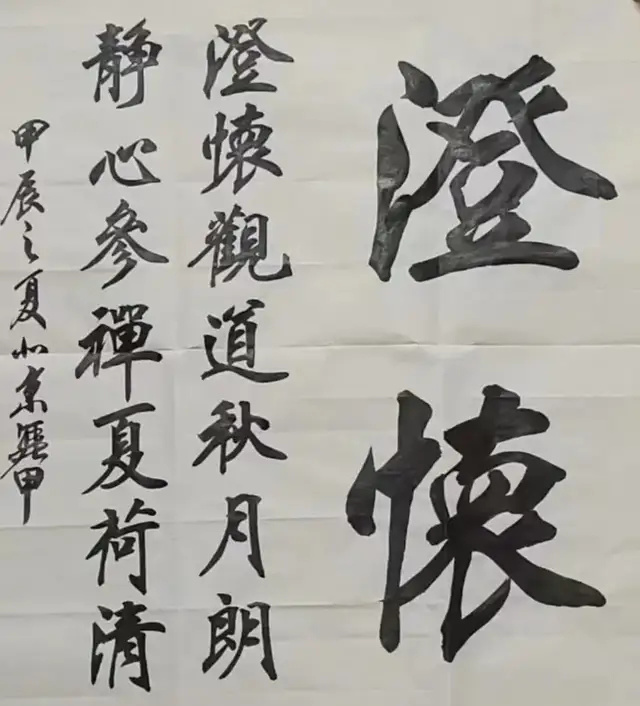 澄懷
澄懷觀道秋月朗
靜心參禪夏荷清
甲辰之夏北京張甲